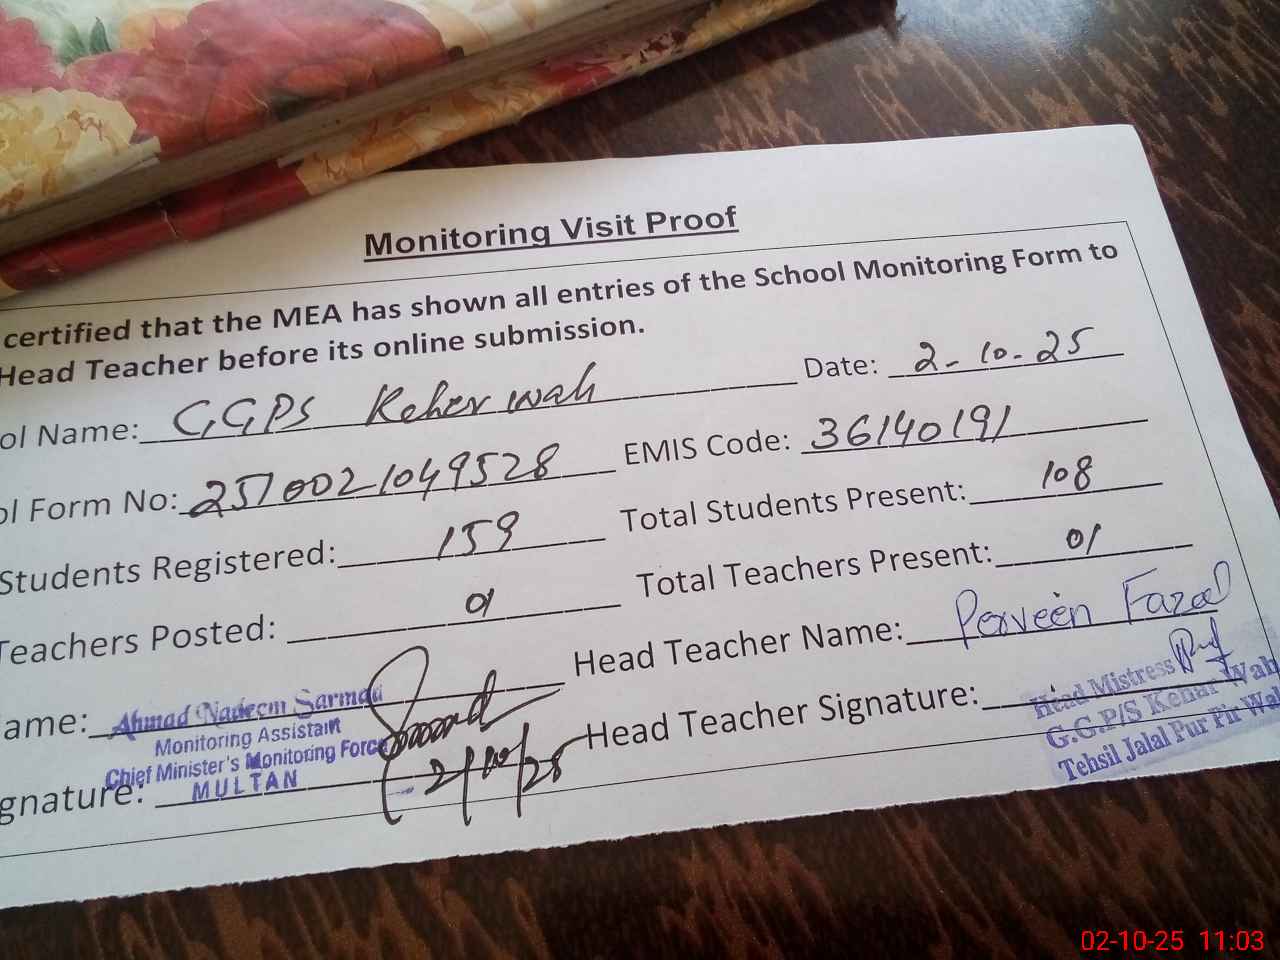 Monitoring Visit Proof
certified that the MEA has shown all entries of the School Monitoring Form to
Head Teacher before its online submission.
ol Name: GGPS Keher wah Date: 2-10-25
ol Form No: 2510021049528 EMIS Code: 36140191
Students Registered: 159 Total Students Present: 108
Teachers Posted: 01 Total Teachers Present: 01
ame: Ahmad Nadeem Sarmad Head Teacher Name: Perveen Fazal
Monitoring Assistant
Chief Minister's Monitoring Force
MULTAN
gnature: 2/10/25 Head Teacher Signature:
Head Mistress
G.G.P/S Kehar Wah
Tehsil Jalal Pur Pir Wal
02-10-25 11:03